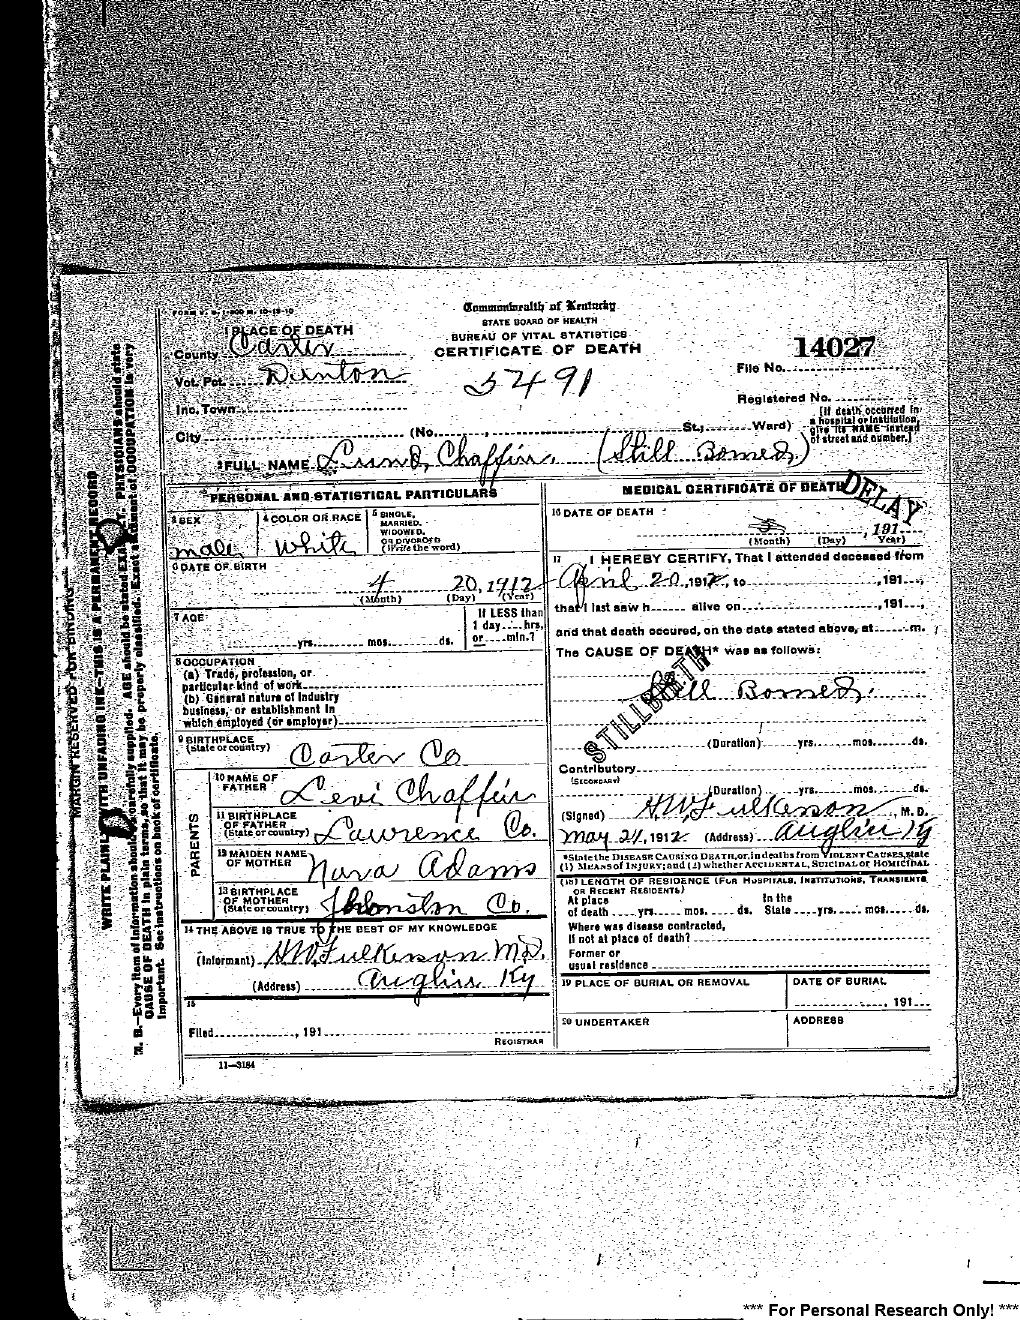 Commonwealth of Kentucky
STATE BOARD OF HEALTH
BUREAU OF VITAL STATISTICS
CERTIFICATE OF DEATH
1 PLACE OF DEATH
County Carter
Vot. Pct. Denton
Inc. Town
City (No. , St.; Ward)
5491
14027
File No.
Registered No.
[If death occurred in
a hospital or institution,
give its NAME instead
of street and number.]
2 FULL NAME Chaffin. (Still Borned)
PERSONAL AND STATISTICAL PARTICULARS
3 SEX
male
4 COLOR OR RACE
White
5 SINGLE,
MARRIED,
WIDOWED,
OR DIVORCED
(Write the word)
6 DATE OF BIRTH
4 20, 1912
(Month) (Day) (Year)
7 AGE
yrs. mos. ds.
If LESS than
1 day hrs.
or min.?
8 OCCUPATION
(a) Trade, profession, or
particular kind of work
(b) General nature of Industry
business, or establishment in
which employed (or employer)
9 BIRTHPLACE
(State or country) Carter Co
PARENTS
10 NAME OF
FATHER Levi Chaffin
11 BIRTHPLACE
OF FATHER
(State or country) Lawrence Co.
12 MAIDEN NAME
OF MOTHER Nora Adams
13 BIRTHPLACE
OF MOTHER
(State or country) Jhonston Co.
14 THE ABOVE IS TRUE TO THE BEST OF MY KNOWLEDGE
(Informant) H.W. Fulkerson M.D.
(Address) Auglin Ky
15
Filed , 191
REGISTRAR
11—3184
MEDICAL CERTIFICATE OF DEATH
DELAY
16 DATE OF DEATH
191
(Month) (Day) Year)
17 I HEREBY CERTIFY, That I attended deceased from
April 20, 1912, to , 191 ,
that I last saw h alive on , 191 ,
and that death occured, on the date stated above, at m.
The CAUSE OF DEATH* was as follows:
Still Borned.
STILLBIRTH
(Duration) yrs. mos. ds.
Contributory
(SECONDARY)
(Duration) yrs. mos. ds.
(Signed) H.W. Fulkerson, M.D.
May 21, 1912 (Address) Auglin Ky
*State the DISEASE CAUSING DEATH, or, in deaths from VIOLENT CAUSES, state
(1) MEANS OF INJURY; and (2) whether ACCIDENTAL, SUICIDAL OR HOMICIDAL.
(18) LENGTH OF RESIDENCE (FOR HOSPITALS, INSTITUTIONS, TRANSIENTS
OR RECENT RESIDENTS)
At place In the
of death yrs. mos. ds. State yrs. mos. ds.
Where was disease contracted,
If not at place of death?
Former or
usual residence
19 PLACE OF BURIAL OR REMOVAL
DATE OF BURIAL
, 191
20 UNDERTAKER
ADDRESS
MARGIN RESERVED FOR BINDING
WRITE PLAINLY WITH UNFADING INK—THIS IS A PERMANENT RECORD
N. B.—Every item of information should be carefully supplied. AGE should be stated EXACTLY. PHYSICIANS should state
CAUSE OF DEATH in plain terms, so that it may be properly classified. Exact statement of OCCUPATION is very
important. See instructions on back of certificate.
*** For Personal Research Only! ***